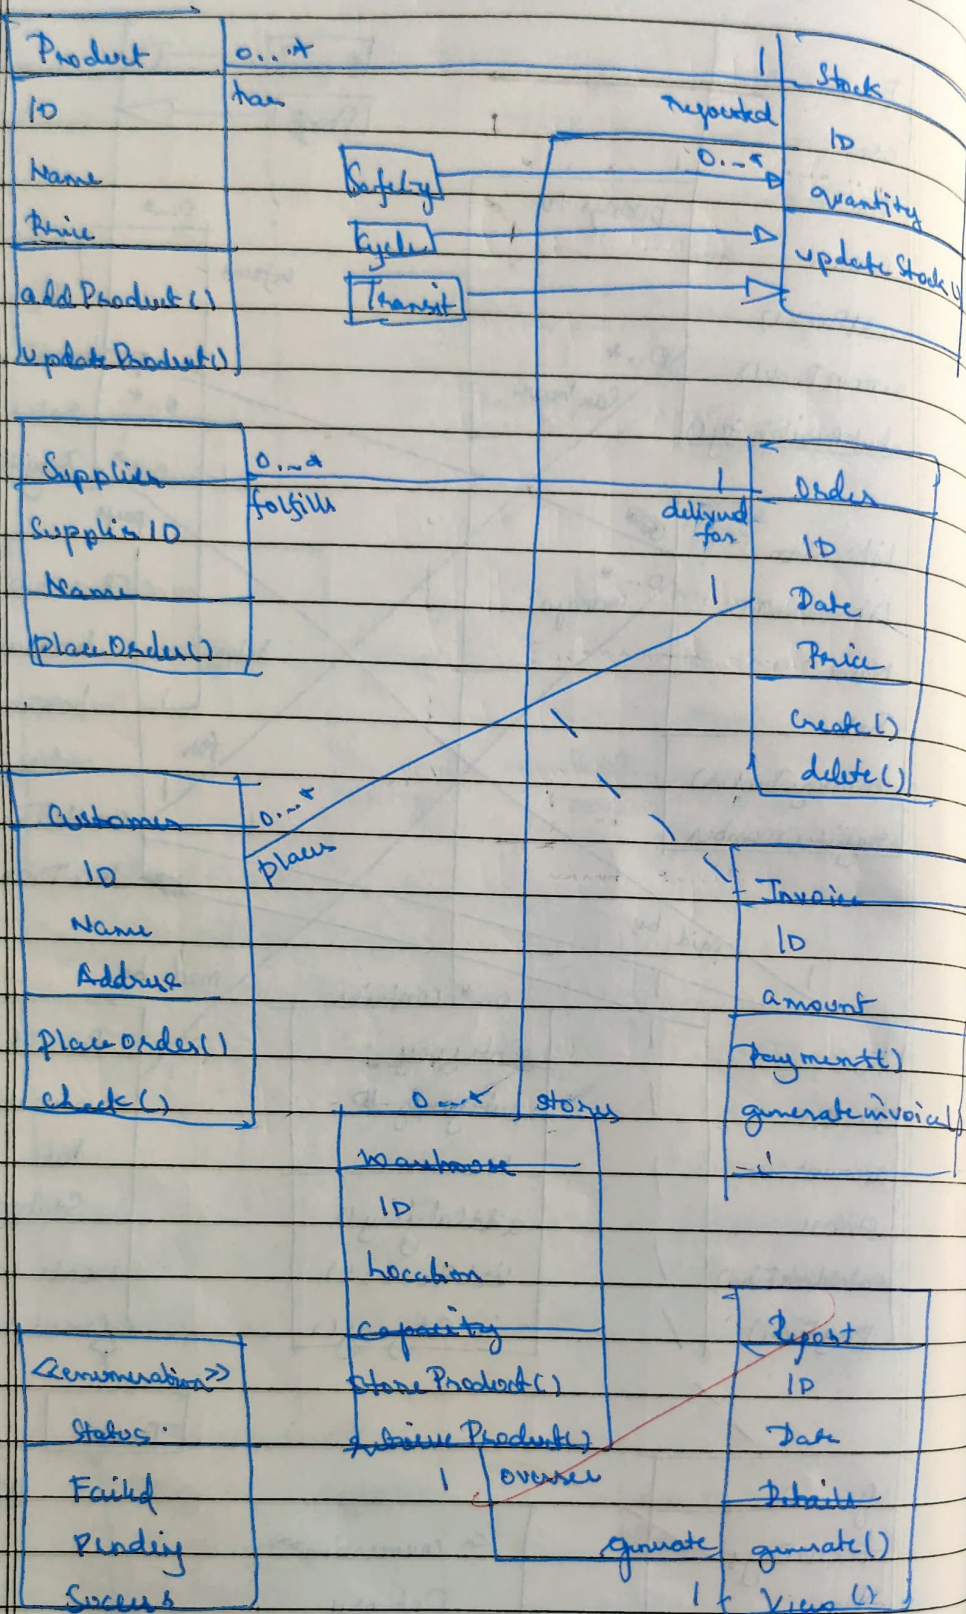 Product
ID
Name
Price
addProduct()
updateProduct()
0...*
has
1
reported
0...*
Stock
ID
quantity
updateStock()
Safety
Cycle
Transit
Supplier
Supplier ID
Name
placeOrder()
0...*
fulfills
1
for
1
Order
ID
Date
Price
Create()
delete()
Customer
ID
Name
Address
placeOrder()
check()
0...*
places
Invoice
ID
amount
Payment()
generateinvoice()
0...*
stores
Warehouse
ID
Location
capacity
StoreProduct()
retrieve Product()
1
oversee
generate
1
Report
ID
Date
Details
generate()
View()
<<enumeration>>
Status
Failed
Pending
Success